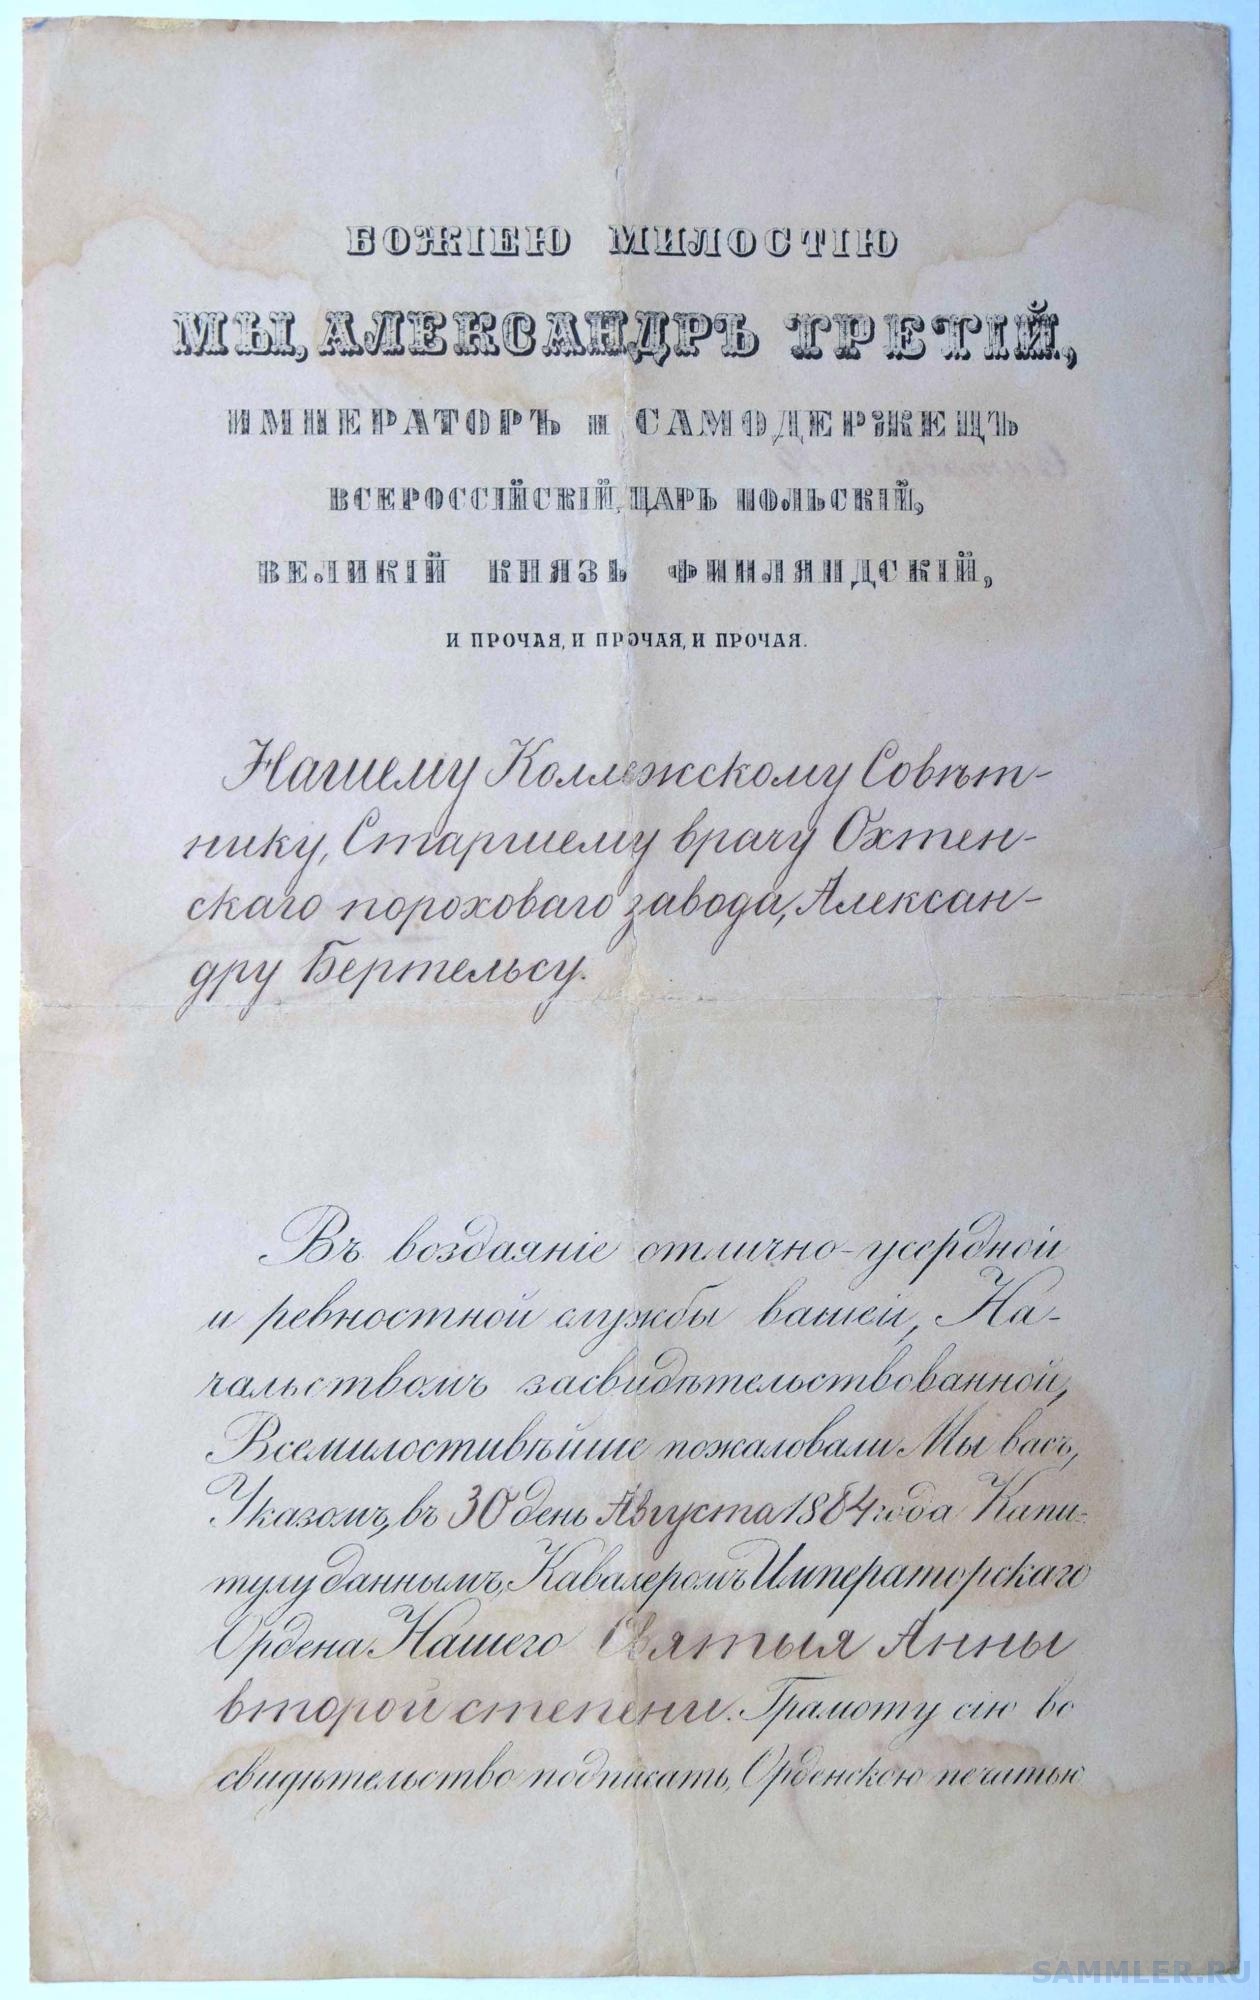 БОЖІЕЮ МИЛОСТІЮ
МЫ, АЛЕКСАНДРЪ ТРЕТІЙ,
ИМПЕРАТОРЪ и САМОДЕРЖЕЦЪ
ВСЕРОССІЙСКІЙ, ЦАРЬ ПОЛЬСКІЙ,
ВЕЛИКІЙ КНЯЗЬ ФИНЛЯНДСКІЙ,
И ПРОЧАЯ, И ПРОЧАЯ, И ПРОЧАЯ.
Нашему Коллежскому Совѣт-
нику, Старшему врачу Охтен-
скаго пороховаго завода, Алексан-
дру Бертельсу.
Въ воздаяніе отлично-усердной
и ревностной службы вашей, На-
чальствомъ засвидѣтельствованной,
Всемилостивѣйше пожаловали Мы васъ,
Указомъ, въ 30 день Августа 1884 года Капи-
тулу даннымъ, Кавалеромъ Императорскаго
Ордена Нашего Святыя Анны
второй степени. Грамоту сію во
свидѣтельство подписать, Орденскою печатью
SAMMLER.RU